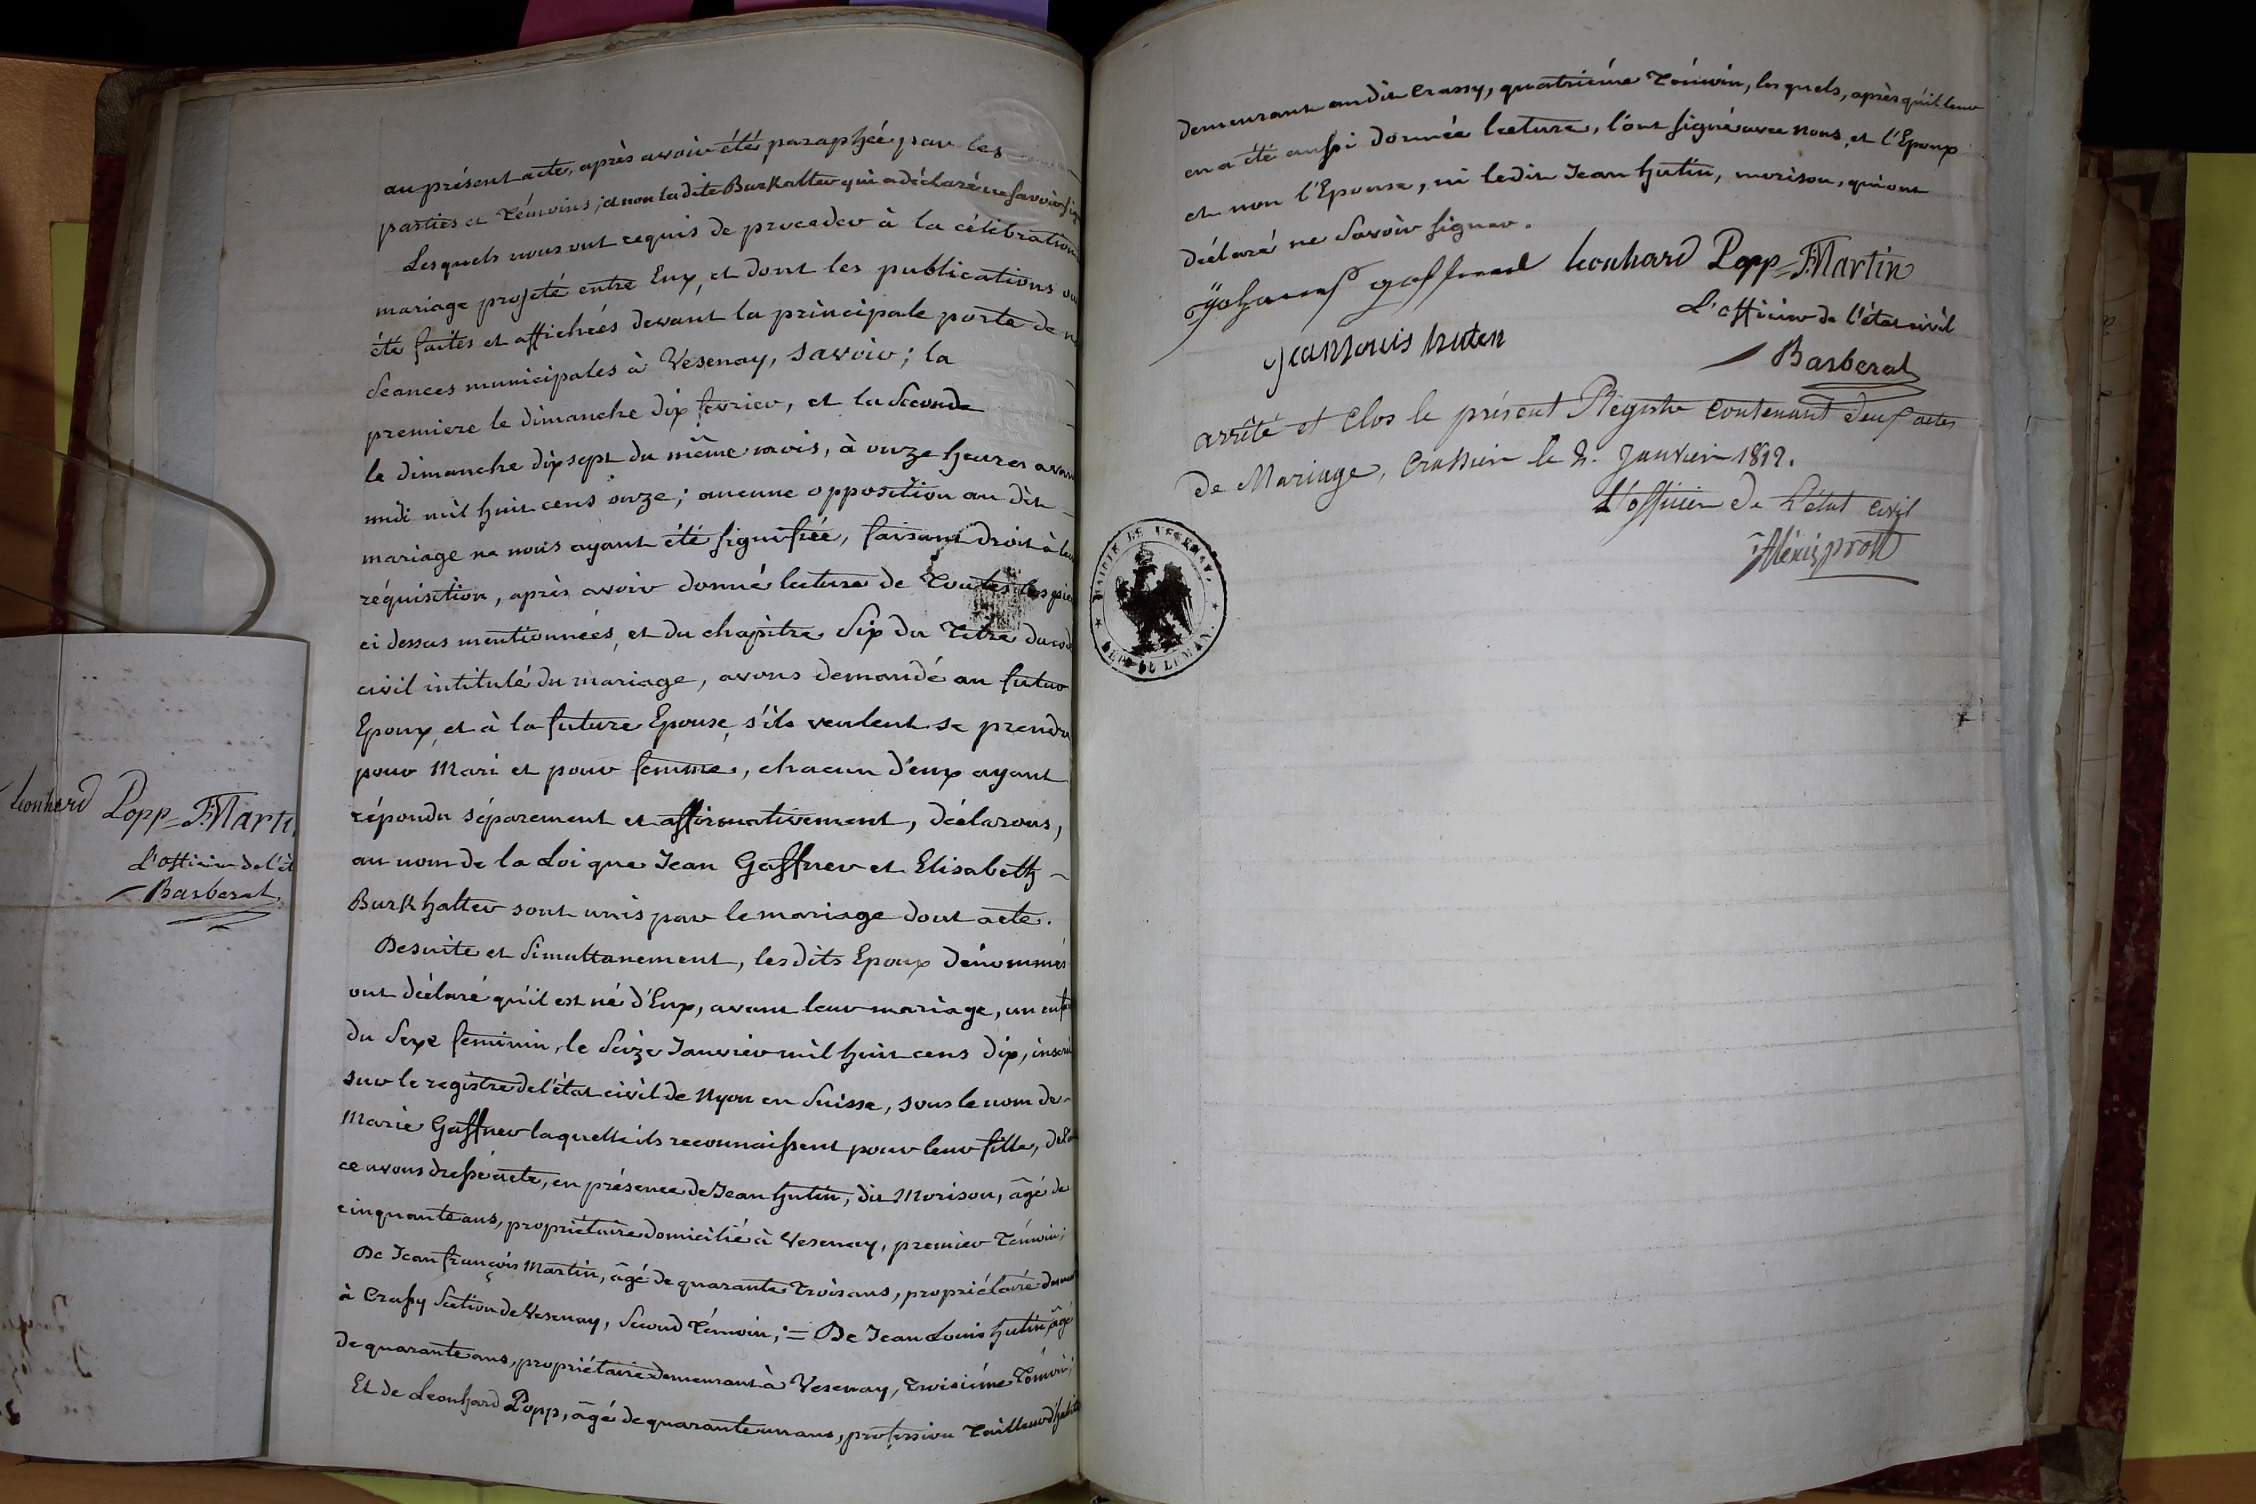 au présent acte, après avoir été paraphée par les
parties et Témoins; et non ladite Burkalter qui a déclaré ne savoir sig
Lesquels nous ont requis de proceder à la célébration
mariage projeté entre Eux, et dont les publications on
été faites et affichées devant la principale porte de n
Seances municipales à Vesenay, savoir; la
premiere le dimanche dix fevrier, et la Seconde
le dimanche dix sept du même mois, à onze heures avant
midi mil huit cens onze; aucune opposition au dit
mariage ne nous ayant été signifiée, faisant droit à leur
réquisition, après avoir donné lecture de Toutes les pie
ci dessus mentionnées, et du chapitre Six du Titre du cod
civil intitulé du mariage, avons demandé au futur
Epoux, et à la future Epouse, s'ils veulent se prendre
pour Mari et pour femme, chacun d'eux ayant
répondu séparement et affirmativement, déclarons,
au nom de la Loi que Jean Gaffner et Elisabeth
Burkhalter sont unis par le mariage dont acte.
Desuite et Simultanement, lesdits Epoux dénommés
ont déclaré qu'il est né d'Eux, avant leur mariage, un enfa
du Sexe feminin, le Seize Janvier mil huit cens dix, inscri
sur le registre de l'état civil de Nyon en Suisse, sous le nom de
Marie Gaffner laquelle ils reconnaissent pour leur fille, de
ce avons dressé acte, en présence de Jean Hutin, dit Morison, âgé de
cinquante ans, propriétaire domicilié à Vesenay, premier Témoin;
De Jean françois Martin, âgé de quarante Trois ans, propriétaire
à Crassy Section de Vesenay, Second Témoin; = De Jean Louis Hutin âgé
de quarante ans, propriétaire demeurant à Vesenay, Troisième Témoin;
Et de Leonhard Popp, âgé de quarante un ans, profession Tailleur d'habits
demeurant audit Crassy, quatrième Témoin, lesquels, après qu'il leur
en a été aussi donnée lecture, l'ont signé avec nous, et l'Epoux
et non l'Epouse, ni ledit Jean Hutin, morison, qui ont
déclaré ne Savoir signer.
Johannes gaffner leonhard Popp = F. Martin
L'officier de l'état civil
Jean Louis huten
Barberat
arrêté et Clos le présent Registre Contenant deux actes
de Mariage, Crassier le 2. Janvier 1812.
L'officier de l'état Civil
Alexis prost
MAIRIE DE VEZENAY
DEP. DU LEMAN
leonhard Popp = F. Marti
L'officier de l'ét
Barberat